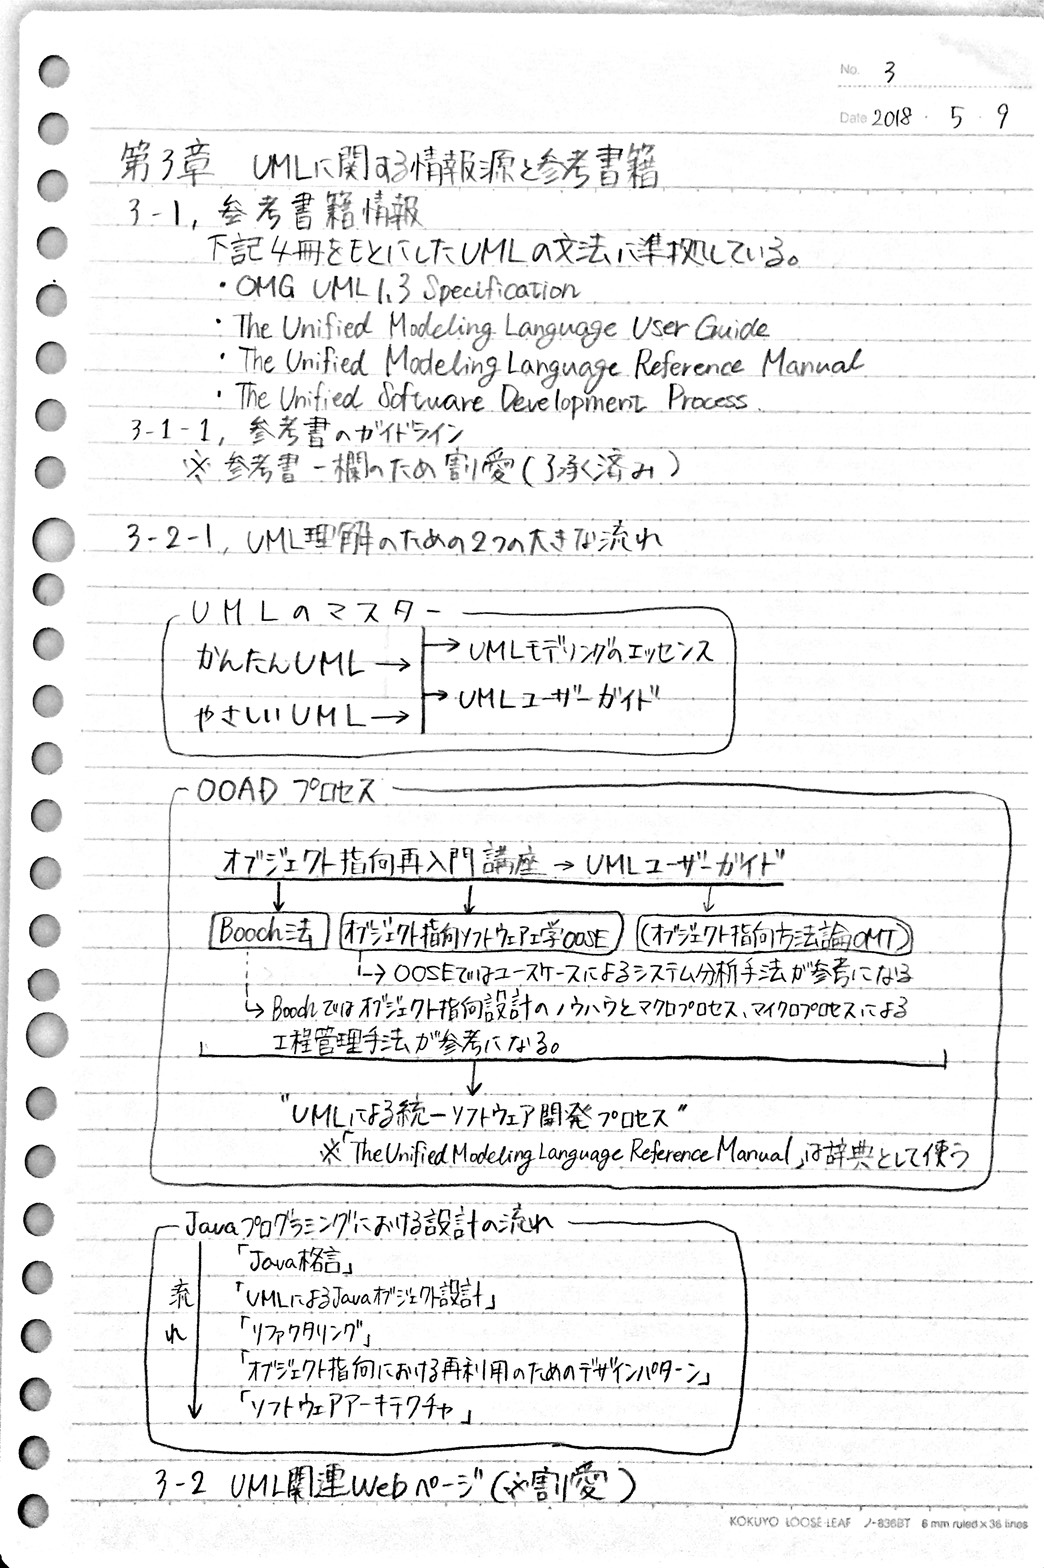 No. 3
Date 2018 ・ 5 ・ 9
第3章 UMLに関する情報源と参考書籍
3-1, 参考書籍情報
下記4冊をもとにしたUMLの文法に準拠している。
・OMG UML 1.3 Specification
・The Unified Modeling Language User Guide
・The Unified Modeling Language Reference Manual
・The Unified Software Development Process.
3-1-1, 参考書のガイドライン
※ 参考書一欄のため割愛(了承く済み)
3-2-1, UML理解のための2つの大きな流れ
UMLのマスター
かんたんUML → → UMLモデリングのエッセンス
やさしいUML → → UMLユーザーガイド
OOADプロセス
オブジェクト指向再入門講座 → UMLユーザーガイド
Booch法 オブジェクト指向ソフトウェア工学OOSE (オブジェクト指向方法論OMT)
→ OOSEではユースケースによるシステム分析手法が参考になる
→ Boochではオブジェクト指向設計のノウハウとマクロプロセス、マイクロプロセスによる
工程管理手法が参考になる。
"UMLによる統一ソフトウェア開発プロセス"
※「The Unified Modeling Language Reference Manual」は辞典として使う
Javaプログラミングにおける設計の流れ
流れ
「Java格言」
「UMLによるJavaオブジェクト設計」
「リファクタリング」
「オブジェクト指向における再利用のためのデザインパターン」
「ソフトウェアアーキテクチャ」
3-2 UML関連Webページ(※割愛)
KOKUYO LOOSE-LEAF ノ-836BT 6 mm ruled × 36 lines